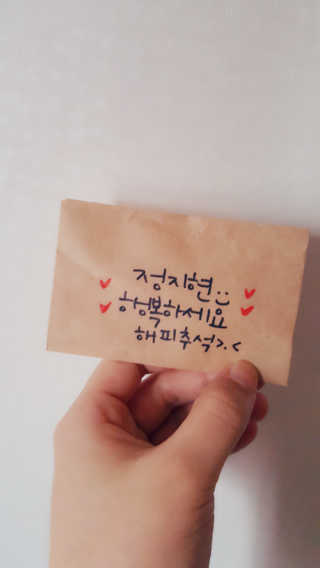 정지현:)
행복하세요
해피추석>.<